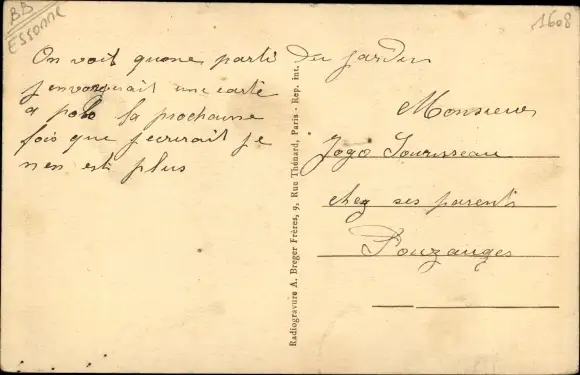 BB
ESSONNE
1608
On voit quone parti du jardin
j envongerait une carte
a la prochaine
fois que j ecrirait je
nen est plus
Radiogravure A. Breger Frères, 9, Rue Thénard, Paris - Rep. int.
Monsieur
Sourisseau
chez ses parents
Pouzauges